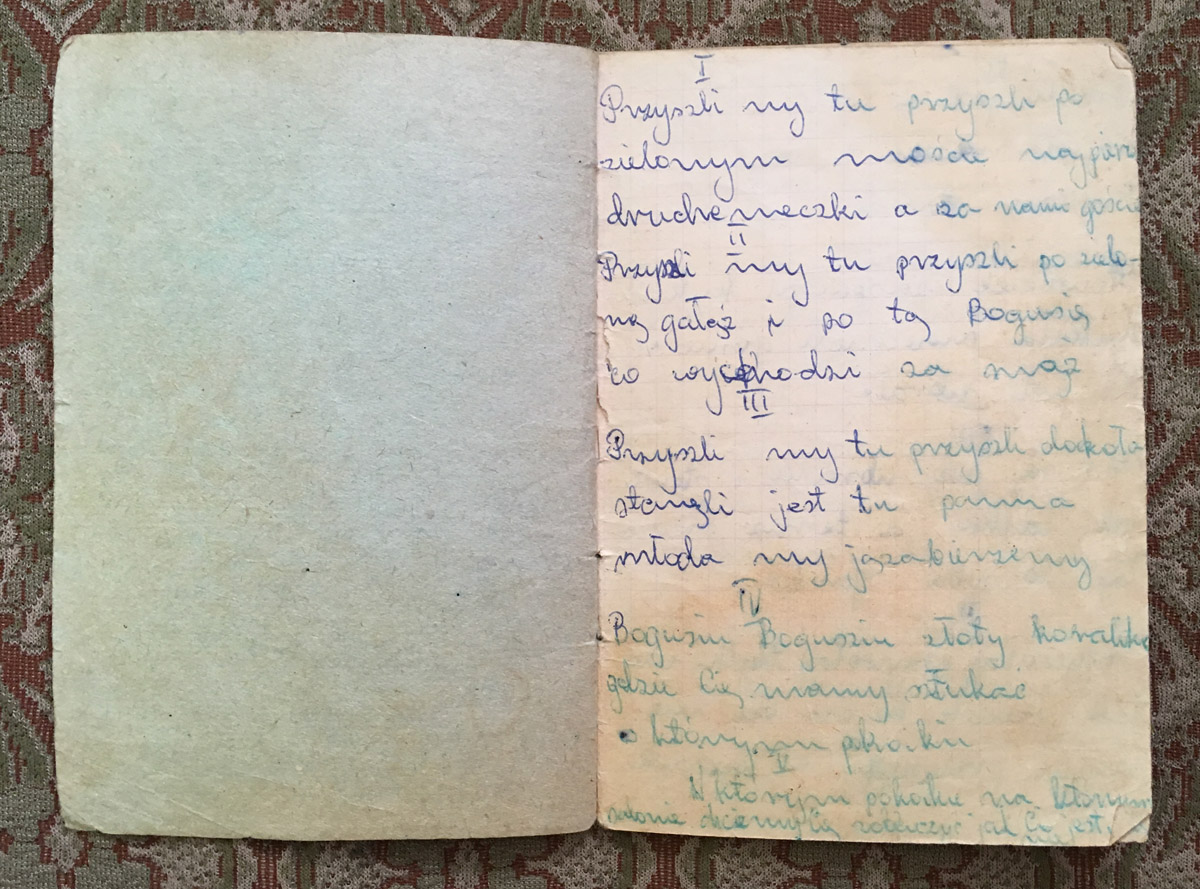 I
Przyszli my tu przyszli po
zielonym moście najpierw
drucheneczki a za nami goście
II
Przyszli my tu przyszli po zielo-
ną gałęź i po tą Bogusię
co wychodzi za mąż
III
Przyszli my tu przyśli dookoła
stanęli jest tu panna
młoda my ją zabierzemy
IV
Bogusiu Bogusziu złoty
gdzie Cię mamy sztukać
w którymm pokoiku
V
W którejm pokoiku na którym
salonie chcemy Cię zobaczyć jak Ci jest,